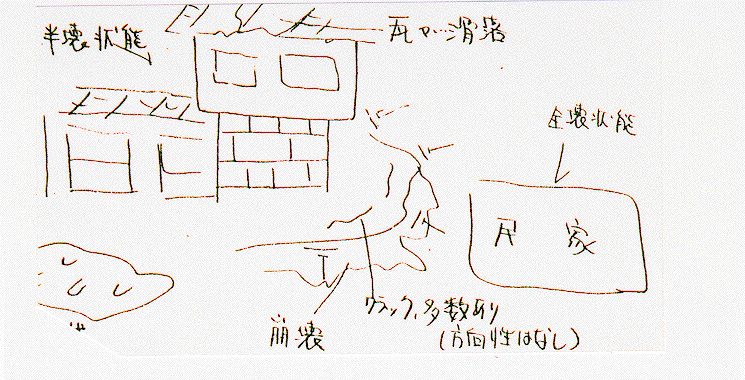 半壊状態
瓦が滑落
全壊状態
民家
崩壊
クラック、多数あり
(方向性はなし)